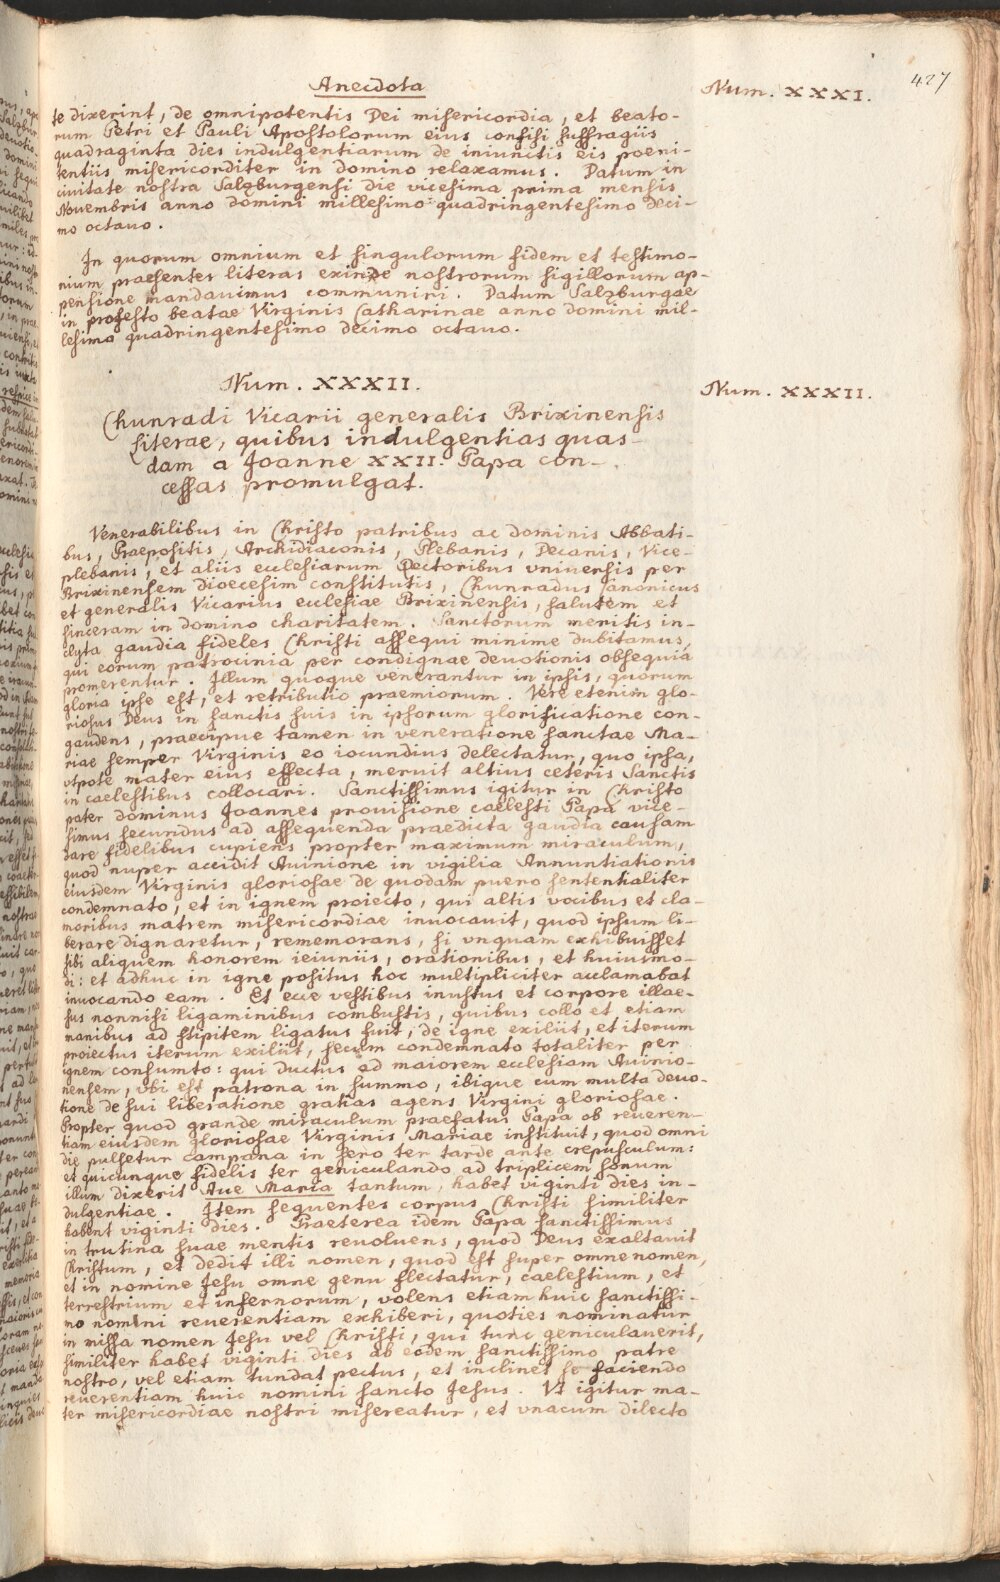 Anecdota
Num. XXXI.
427
te dixerint, de omnipotentis Dei misericordia, et beato-
rum Petri et Pauli Apostolorum eius confisi suffragiis
quadraginta dies indulgentiarum de iniunctis eis poeni-
tentiis misericorditer in domino relaxamus. Datum in
ciuitate nostra Salzburgensi die vicesima prima mensis
Nouembris anno domini millesimo quadringentesimo deci-
mo octauo.
In quorum omnium et singulorum fidem et testimo-
nium praesentes literas exinde nostrorum sigillorum ap-
pensione mandauimus communiri. Datum Salzburgae
in profesto beatae Virginis Catharinae anno domini mil-
lesimo quadringentesimo decimo octauo.
Num. XXXII.
Num. XXXII.
Chunradi Vicarii generalis Brixinensis
literae, quibus indulgentias quas-
dam a Joanne XXII. Papa con-
cessas promulgat.
Venerabilibus in Christo patribus ac dominis Abbati-
bus, Praepositis, Archidiaconis, Plebanis, Decanis, Vice-
plebanis, et aliis ecclesiarum Rectoribus vniuersis per
Brixinensem dioecesim constitutis, Chunradus Canonicus
et generalis Vicarius ecclesiae Brixinensis, salutem et
sinceram in domino charitatem. Sanctorum meritis in-
clyta gaudia fideles Christi assequi minime dubitamus,
qui eorum patrocinia per condignae deuotionis obsequia
promerentur. Illum quoque venerantur in ipsis, quorum
gloria ipse est, et retributio praemiorum. Vere etenim glo-
riosus Deus in sanctis suis in ipsorum glorificatione con-
gaudens, praecipue tamen in veneratione sanctae Ma-
riae semper Virginis eo iocundius delectatur, quo ipsa,
vtpote mater eius effecta, meruit altius ceteris Sanctis
in caelestibus collocari. Sanctissimus igitur in Christo
pater dominus Joannes prouisione caelesti Papa vice-
simus secundus ad assequenda praedicta gaudia causam
dare fidelibus cupiens propter maximum miraculum,
quod nuper accidit Auinione in vigilia Annuntiationis
eiusdem Virginis gloriosae de quodam puero sententialiter
condemnato, et in ignem proiecto, qui altis vocibus et cla-
moribus matrem misericordiae inuocauit, quod ipsum li-
berare dignaretur, rememorans, si vnquam exhibuisset
sibi aliquem honorem ieiuniis, orationibus, et huiusmo-
di: et adhuc in igne positus hoc multipliciter acclamabat
inuocando eam. Et ecce vestibus inustus et corpore illae-
sus nonnisi ligaminibus combustis, quibus collo et etiam
manibus ad stipitem ligatus fuit, de igne exiliit, et iterum
proiectus iterum exiliit, secum condemnato totaliter per
ignem consumto: qui ductus ad maiorem ecclesiam Auinio-
nensem, vbi est patrona in summo, ibique cum multa deuo-
tione de sui liberatione gratias agens Virgini gloriosae.
Propter quod grande miraculum praefatus Papa ob reueren-
tiam eiusdem gloriosae Virginis Mariae instituit, quod omni
die pulsetur campana in sero ter tarde ante crepusculum:
et quicunque fidelis ter geniculando ad triplicem sonum
illum dixerit Aue Maria tantum, habet viginti dies in-
dulgentiae. Item sequentes corpus Christi similiter
habent viginti dies. Praeterea idem Papa sanctissimus
in trutina suae mentis reuoluens, quod Deus exaltauit
Christum, et dedit illi nomen, quod est super omne nomen,
et in nomine Jesu omne genu flectatur, caelestium, et
terrestrium et infernorum, volens etiam huic sanctissi-
mo nomini reuerentiam exhiberi, quoties nominatur
in missa nomen Jesu vel Christi, qui tunc geniculauerit,
similiter habet viginti dies ab eodem sanctissimo patre
nostro, vel etiam tundat pectus, et inclinet se faciendo
reuerentiam huic nomini sancto Jesus. Vt igitur ma-
ter misericordiae nostri misereatur, et vnacum dilecto